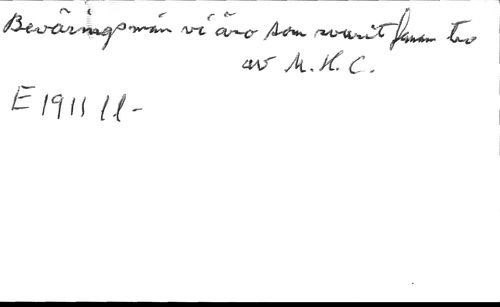 Beväringsmän vi äro som svurit fanan tro
av M. H. C.
E 1911 11-